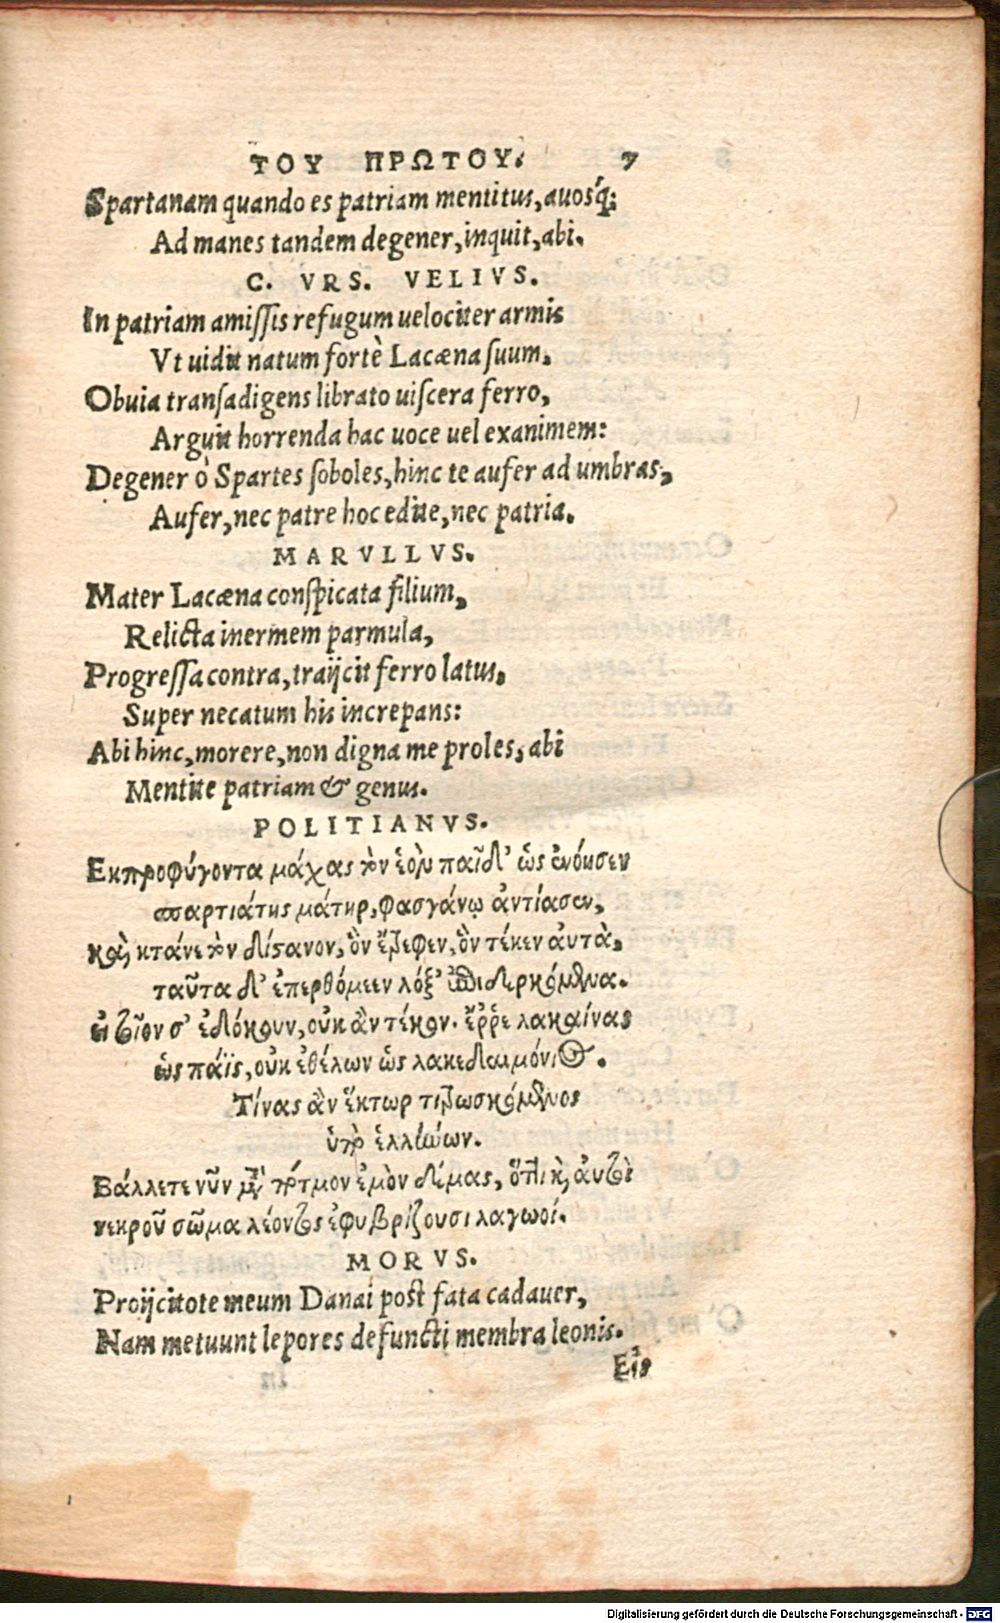 ΤΟΥ ΠΡΩΤΟΥ. 7
Spartanam quando es patriam mentitus, auosq́;
Ad manes tandem degener, inquit, abi.
C. VRS. VELIVS.
In patriam amissis refugum uelociter armis
Vt uidit natum fortè Lacæna suum,
Obuia transadigens librato uiscera ferro,
Arguit horrenda hac uoce uel exanimem:
Degener ô Spartes soboles, hinc te aufer ad umbras,
Aufer, nec patre hoc edite, nec patria.
MARVLLVS.
Mater Lacæna conspicata filium,
Relicta inermem parmula,
Progressa contra, traijcit ferro latus,
Super necatum his increpans:
Abi hinc, morere, non digna me proles, abi
Mentite patriam & genus.
POLITIANVS.
Εκπροφύγοντα μάχας τὸν ἑὸν παῖδ' ὡς ἐνόησεν
σπαρτιάτης μάτηρ, φασγάνῳ ἀντίασεν,
καὶ κτάνε τὸν δίσανον, ὃν ἔτρεφεν, ὃν τέκεν αὐτὰ,
ταῦτα δ' ἐπερθόμεεν λόξ' ἐπιδερκόμενα.
εἰ τοῖον σ' ἐδόκουν, οὐκ ἂν τέκον. ἔῤῥε λακαίνας
ὡς πάϊς, οὐκ ἐθέλων ὡς λακεδαιμόνιος.
Τίνας ἂν ἕκτωρ τιτρωσκόμενος
ὑπὸ ἑλλήνων.
Βάλλετε νῦν μετὰ πότμον ἐμὸν δέμας, ὅττι καὶ αὐτοὶ
νεκροῦ σῶμα λέοντος ἐφυβρίζουσι λαγωοί.
MORVS.
Proijcitote meum Danai post fata cadauer,
Nam metuunt lepores defuncti membra leonis.
Εἰς
Digitalisierung gefördert durch die Deutsche Forschungsgemeinschaft - DFG